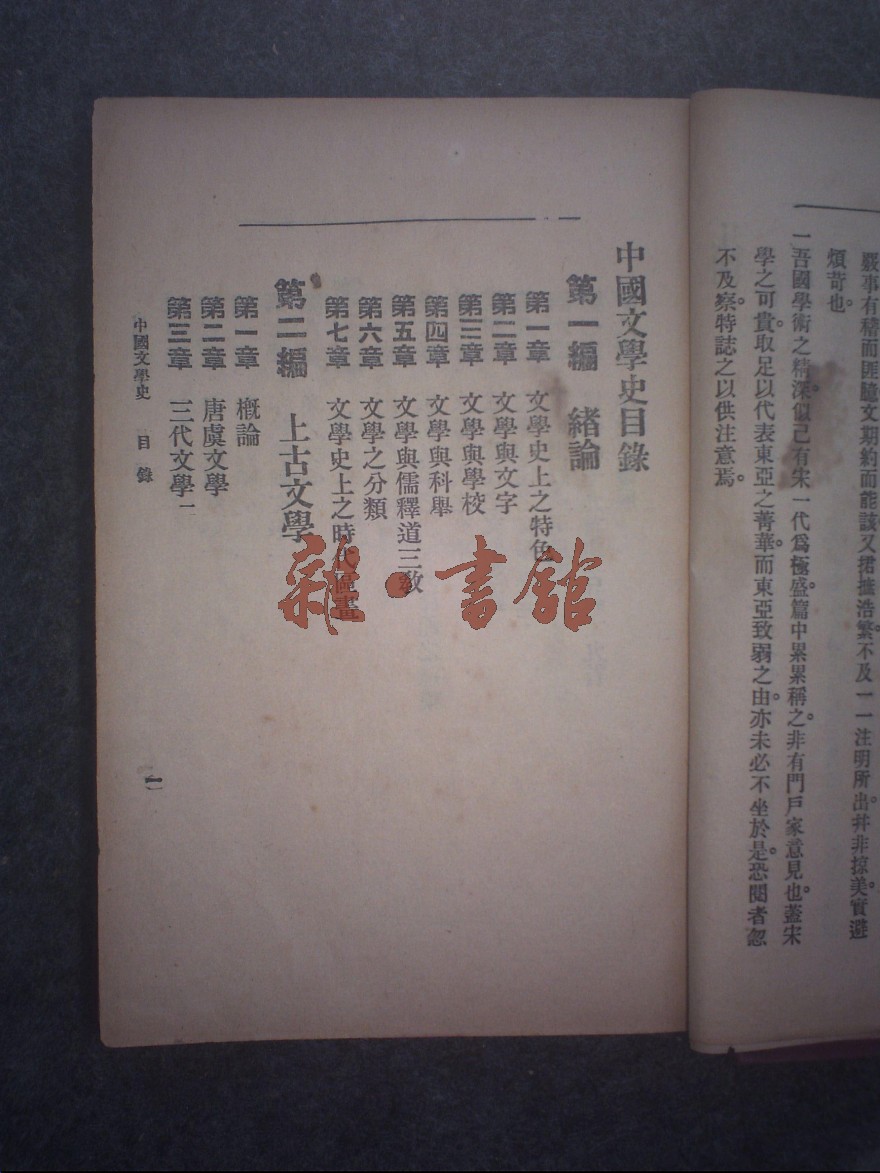 覈事有稽而匪臆文期約而能該又捃摭浩繁不及一一注明所出幷非掠美實避
煩苛也。
一吾國學術之精深似已有宋一代爲極盛篇中累累稱之。非有門戶家意見也。蓋宋
學之可貴。取足以代表東亞之菁華。而東亞致弱之由。亦未必不坐於是。恐閱者忽
不及察。特誌之以供注意焉。
中國文學史目錄
第一編 緒論
第一章 文學史上之特色
第二章 文學與文字
第三章 文學與學校
第四章 文學與科舉
第五章 文學與儒釋道三敎
第六章 文學之分類
第七章 文學史上之時代區畫
第二編 上古文學
第一章 槪論
第二章 唐虞文學
第三章 三代文學一
中國文學史 目錄
一
雜·書館